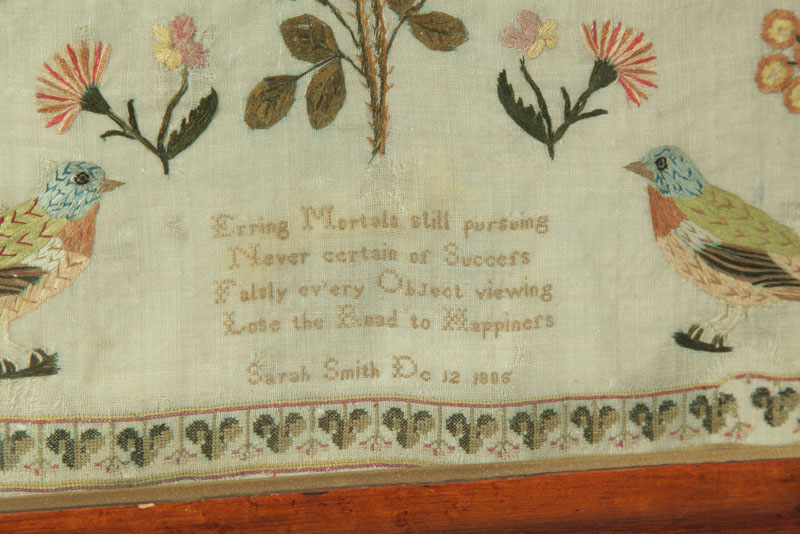 Erring Mortals still pursuing
Never certain of Succeſs
Falsly ev'ery Object viewing
Lose the Road to Happineſs
Sarah Smith Dc 12 1805